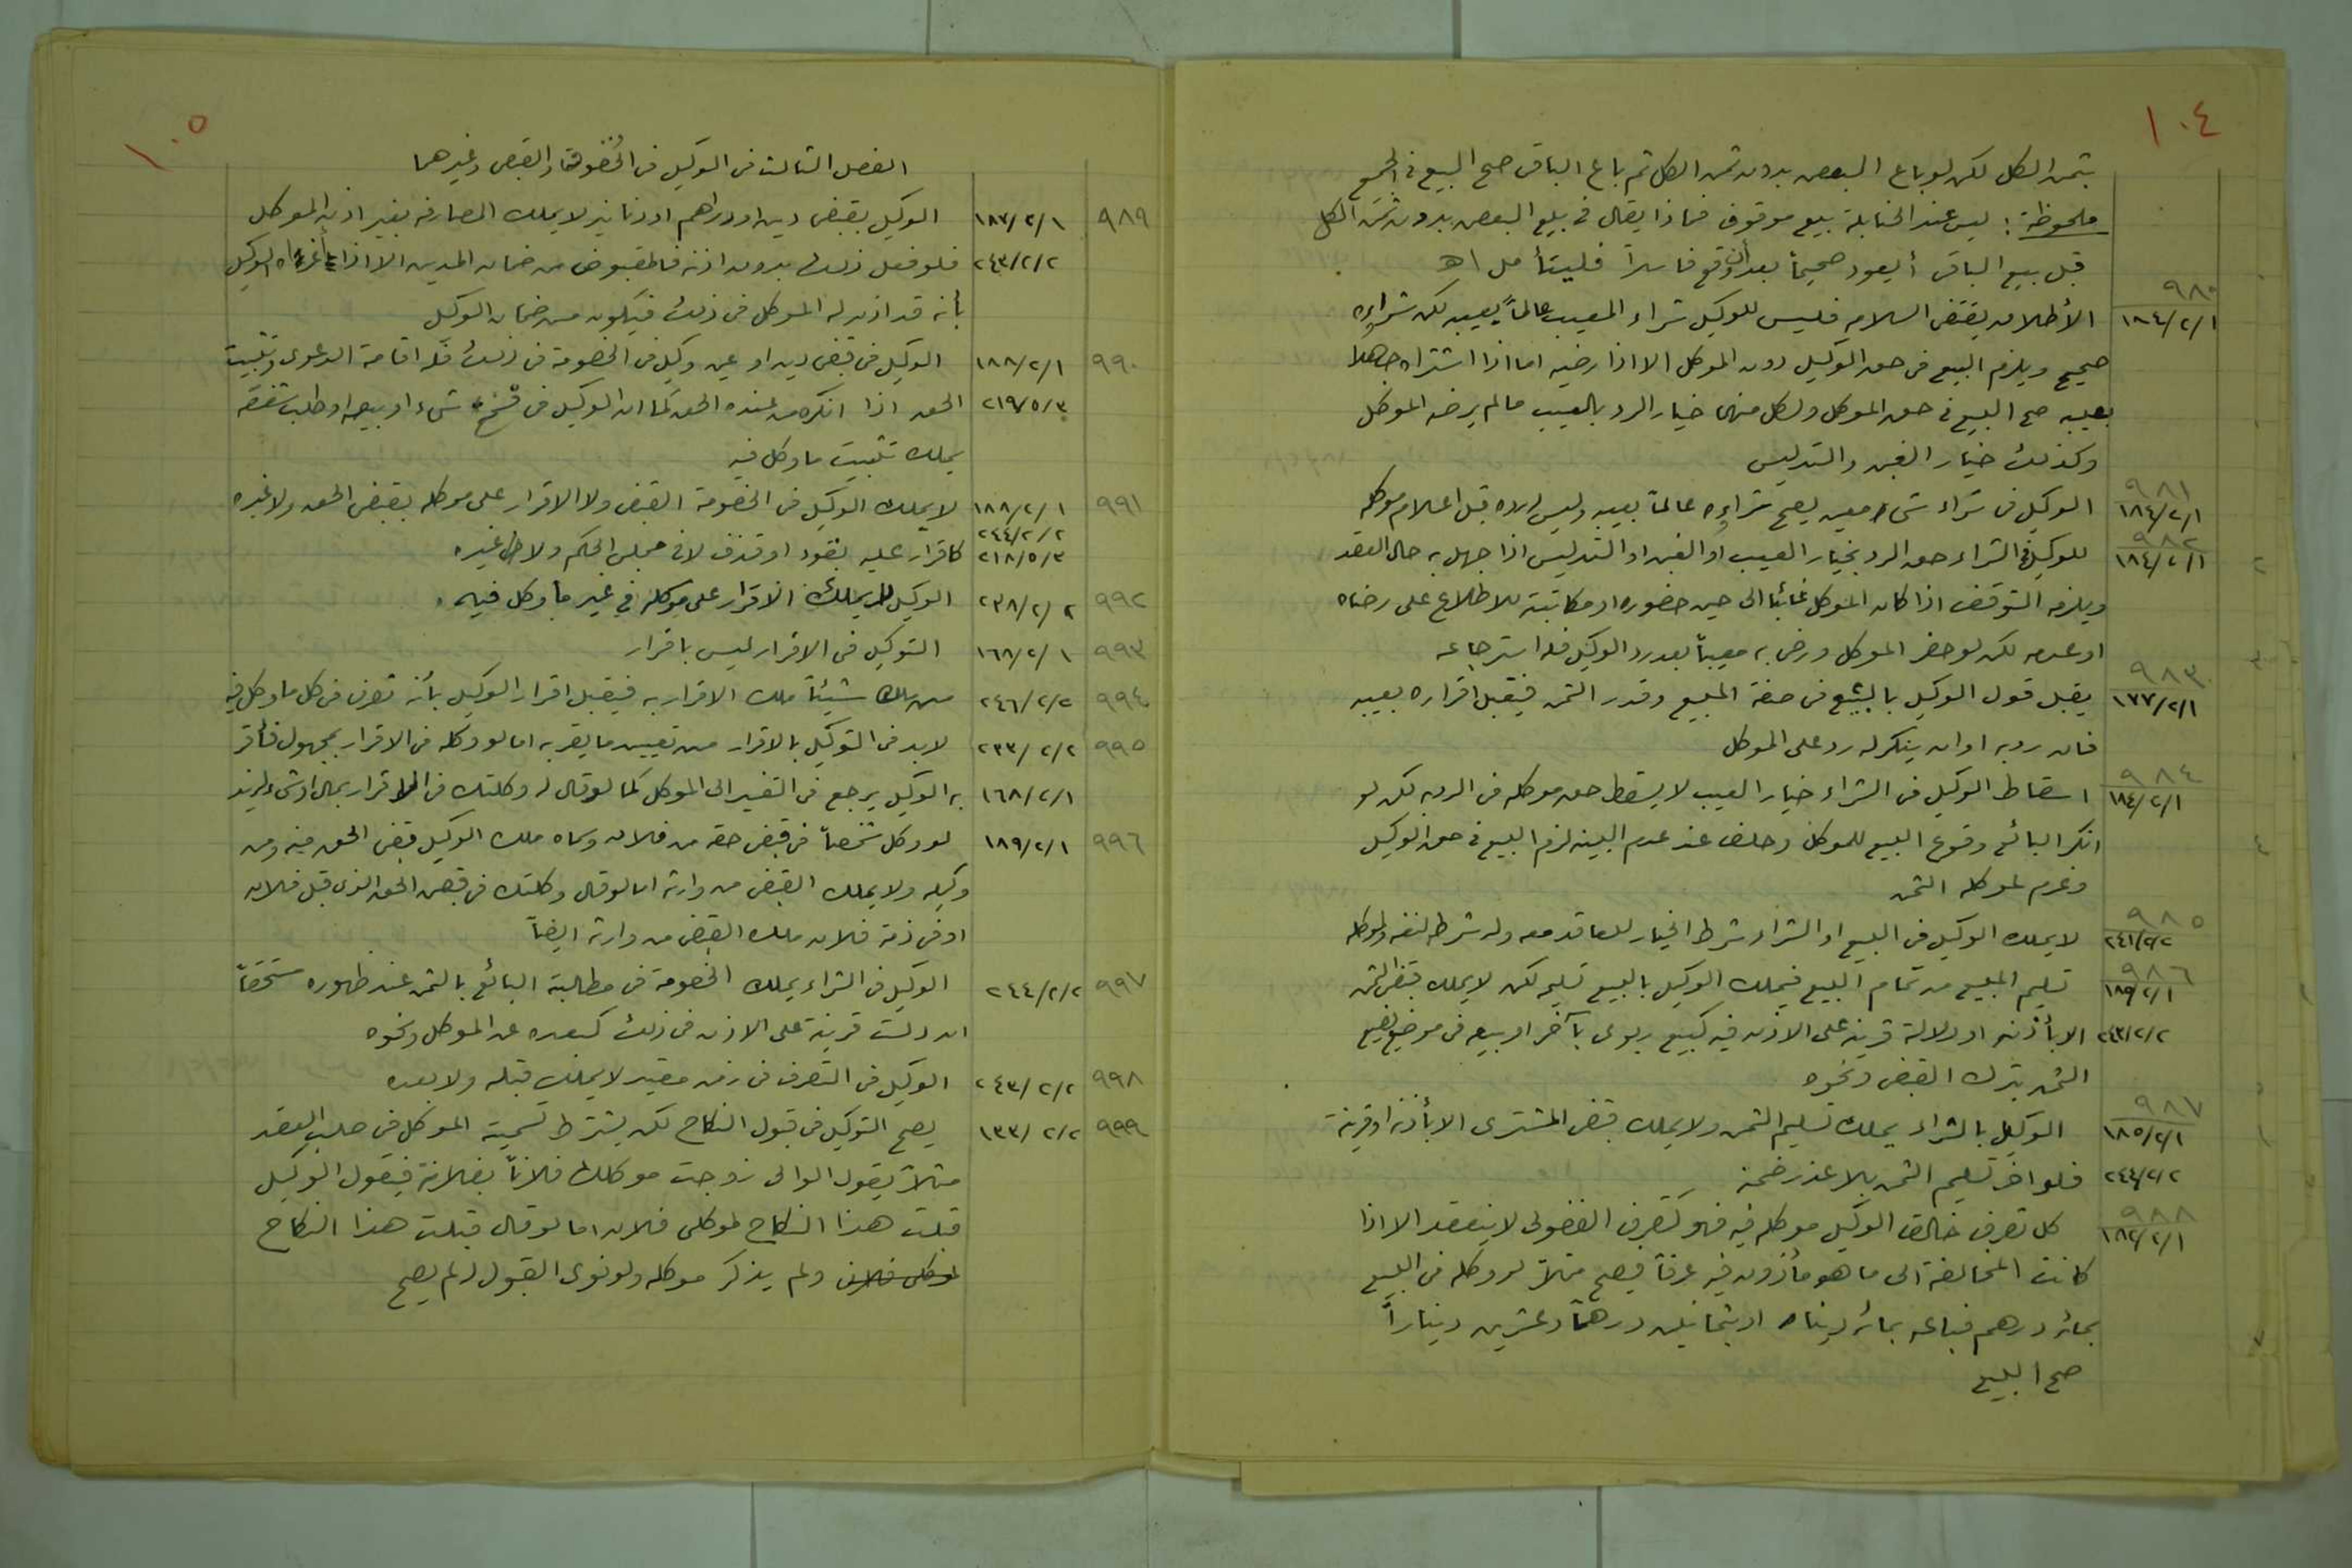 ١٠٤
بثمن الكل لكن لو باع البعض بدون ثمن الكل ثم باع الباقي صح البيع في الجميع
ملحوظة: ليس عند الحنابلة بيع موقوف فماذا يقال في بيع البعض بدون ثمن الكل
قبل بيع الباقي أيعود صحيحاً بعد أن وقع فاسداً فليتأمل اهـ
٩٨٠ ١٨٤/٢/١ الأطلاق يقتضي السلامة فليس للوكيل شراء المعيب عالماً بعيبه لكن شراؤه
صحيح ويلزم البيع في حق الوكيل دون الموكل الا اذا رضيه اما اذا اشتراه جاهلا
بعيبه صح البيع في حق الموكل ولكل منهما خيار الرد بالعيب مالم يرضه الموكل
وكذلك خيار الغبن والتدليس
٩٨١ ١٨٤/٢/١ الوكيل في شراء شيء معين يصح شراؤه عالماً بعيبه وليس له رده قبل اعلام موكله
٩٨٢ ١٨٤/٢/١ للوكيل في الشراء حق الرد بخيار العيب أو الغبن او التدليس اذا جهل به حال العقد
ويلزمه التوقف اذا كان الموكل غائباً الى حين حضوره او مكاتبته للاطلاع على رضاه
او عدمه لكن لو حضر الموكل ورضي به معيباً بعد رد الوكيل فله استرجاعه
٩٨٣ ١٧٧/٢/١ يقبل قول الوكيل بالبيع في صفة المبيع وقدر الثمن فيقبل اقراره بعيبه
فان رد به او ان ينكر له رد على الموكل
٩٨٤ ١٨٤/٢/١ اسقاط الوكيل في الشراء خيار العيب لا يسقط حق موكله في الرد به لكن لو
انكر البائع وقوع البيع للموكل وحلف عند عدم البينة لزم البيع في حق الوكيل
وغرم لموكله الثمن
٩٨٥ ٢٤١/٢/٢ لا يملك الوكيل في البيع او الشراء شرط الخيار للعاقد معه وله شرطه لنفسه ولموكله
٩٨٦ ١٨٩/٢/١ تسليم المبيع من تمام البيع فيملك الوكيل بالبيع تسليمه لكن لا يملك قبض الثمن
٢٤٣/٢/٢ الا بأذنه او دلالة قرينة على الاذن فيه كبيع ربوي بآخر او بيعه في موضع يضيع
الثمن بترك القبض ونحوه
٩٨٧ ١٨٥/٢/١ الوكيل بالشراء يملك تسليم الثمن ولا يملك قبض المشترى الا بأذنه او قرينة
٢٤٤/٢/٢ فلو اخر تسليم الثمن بلا عذر ضمنه
٩٨٨ ١٨٢/٢/١ كل تصرف خالف الوكيل موكله فيه فهو كتصرف الفضولي لا ينعقد الا اذا
كانت المخالفة الى ما هو مأذون فيه عرفاً فيصح مثلاً لو وكله في البيع
بمائة درهم فباعه بمائة دينار او بثمانين درهماً وعشرين ديناراً
صح البيع
١٠٥
الفصل الثالث في الوكيل في الخصومة والقبض وغيرهما
٩٨٩ ١٨٧/٢/١ الوكيل بقبض دين او دراهم او دنانير لا يملك المصارفه بغير اذن الموكل
٢٤٣/٢/٢ فلو فعل ذلك بدون اذنه فالمقبوض من ضمان المدين الا اذا أغراه الوكيل
بأنه قد اذن له الموكل في ذلك فيكون من ضمان الوكيل
٩٩٠ ١٨٨/٢/١ الوكيل في قبض دين او عين وكيل في الخصومة في ذلك فله اقامة الدعوى وتثبيت
٢١٩/٥/٣ الحق اذا انكره من عنده الحق كما ان الوكيل في فسخ شيء او بيعه او طلب شفعة
يملك تثبيت ما وكل فيه
٩٩١ ١٨٨/٢/١ لا يملك الوكيل في الخصومة القبض ولا الاقرار على موكله بقبض الحق ولا غيره
٢٤٤/٢/٢
٢١٨/٥/٣ كاقرار عليه بقود او قذف لا في مجلس الحكم ولا في غيره
٩٩٢ ٢٣٨/٢/٢ الوكيل لا يملك الاقرار على موكله في غير ما وكل فيه.
٩٩٣ ١٦٨/٢/١ التوكيل في الاقرار ليس باقرار
٩٩٤ ٢٤٦/٢/٢ من ملك شيئاً ملك الاقرار به فيقبل اقرار الوكيل بأنه تصرف في كل ما وكل فيه
٩٩٥ ٢٣٣/٢/٢ لا بد في التوكيل بالاقرار من تعيين ما يقر به اما لو وكله في الاقرار بمجهول فأقر
١٦٨/٢/١ به الوكيل يرجع في التفسير الى الموكل كما لو قال له وكلتك في الاقرار بمال او شيء لزيد
٩٩٦ ١٨٩/٢/١ لو وكل شخصاً في قبض حقه من فلان وسماه ملك الوكيل قبض الحق منه ومن
وكيله ولا يملك القبض من وارثه اما لو قال وكلتك في قبض الحق الذي قبل فلان
او في ذمة فلان ملك القبض من وارثه ايضاً
٩٩٧ ٢٤٤/٢/٢ الوكيل في الشراء يملك الخصومة في مطالبة البائع بالثمن عند ظهوره مستحقاً
ان دلت قرينة على الاذن في ذلك كبعده عن الموكل ونحوه
٩٩٨ ٢٤٣/٢/٢ الوكيل في التصرف في زمن مقيد لا يملك قبله ولا بعده
٩٩٩ ١٣٣/٢/٢ يصح التوكيل في قبول النكاح لكن يشترط تسمية الموكل في صلب العقد
مثلاً يقول الوالي زوجت موكلك فلاناً بفلانة فيقول الوكيل
قبلت هذا النكاح لموكلي فلان اما لو قال قبلت هذا النكاح
لموكلي فلان ولم يذكر موكله ولو نوى القبول له لم يصح